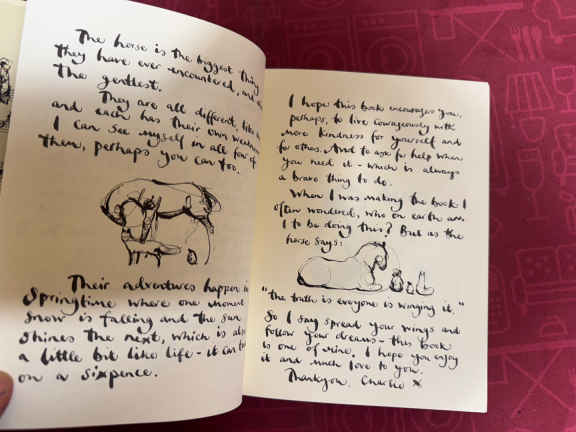 The horse is the biggest thing
they have ever encountered, and
the gentlest.
They are all different, like
and each has their own
I can see myself in all four of
them, perhaps you can too.
Their adventures happen in
Springtime where one moment
snow is falling and the sun
shines the next, which is also
a little bit like life - it can
on a sixpence.
I hope this book encourages you,
perhaps, to live courageously with
more kindness for yourself and
for others. And to ask for help when
you need it - which is always
a brave thing to do.
When I was making the book I
often wondered, who on earth am
I to be doing this? But as the
horse says:
"the truth is everyone is winging it."
So I say spread your wings and
follow your dreams - this book
is one of mine. I hope you enjoy
it and much love to you.
Thankyou. Charlie x